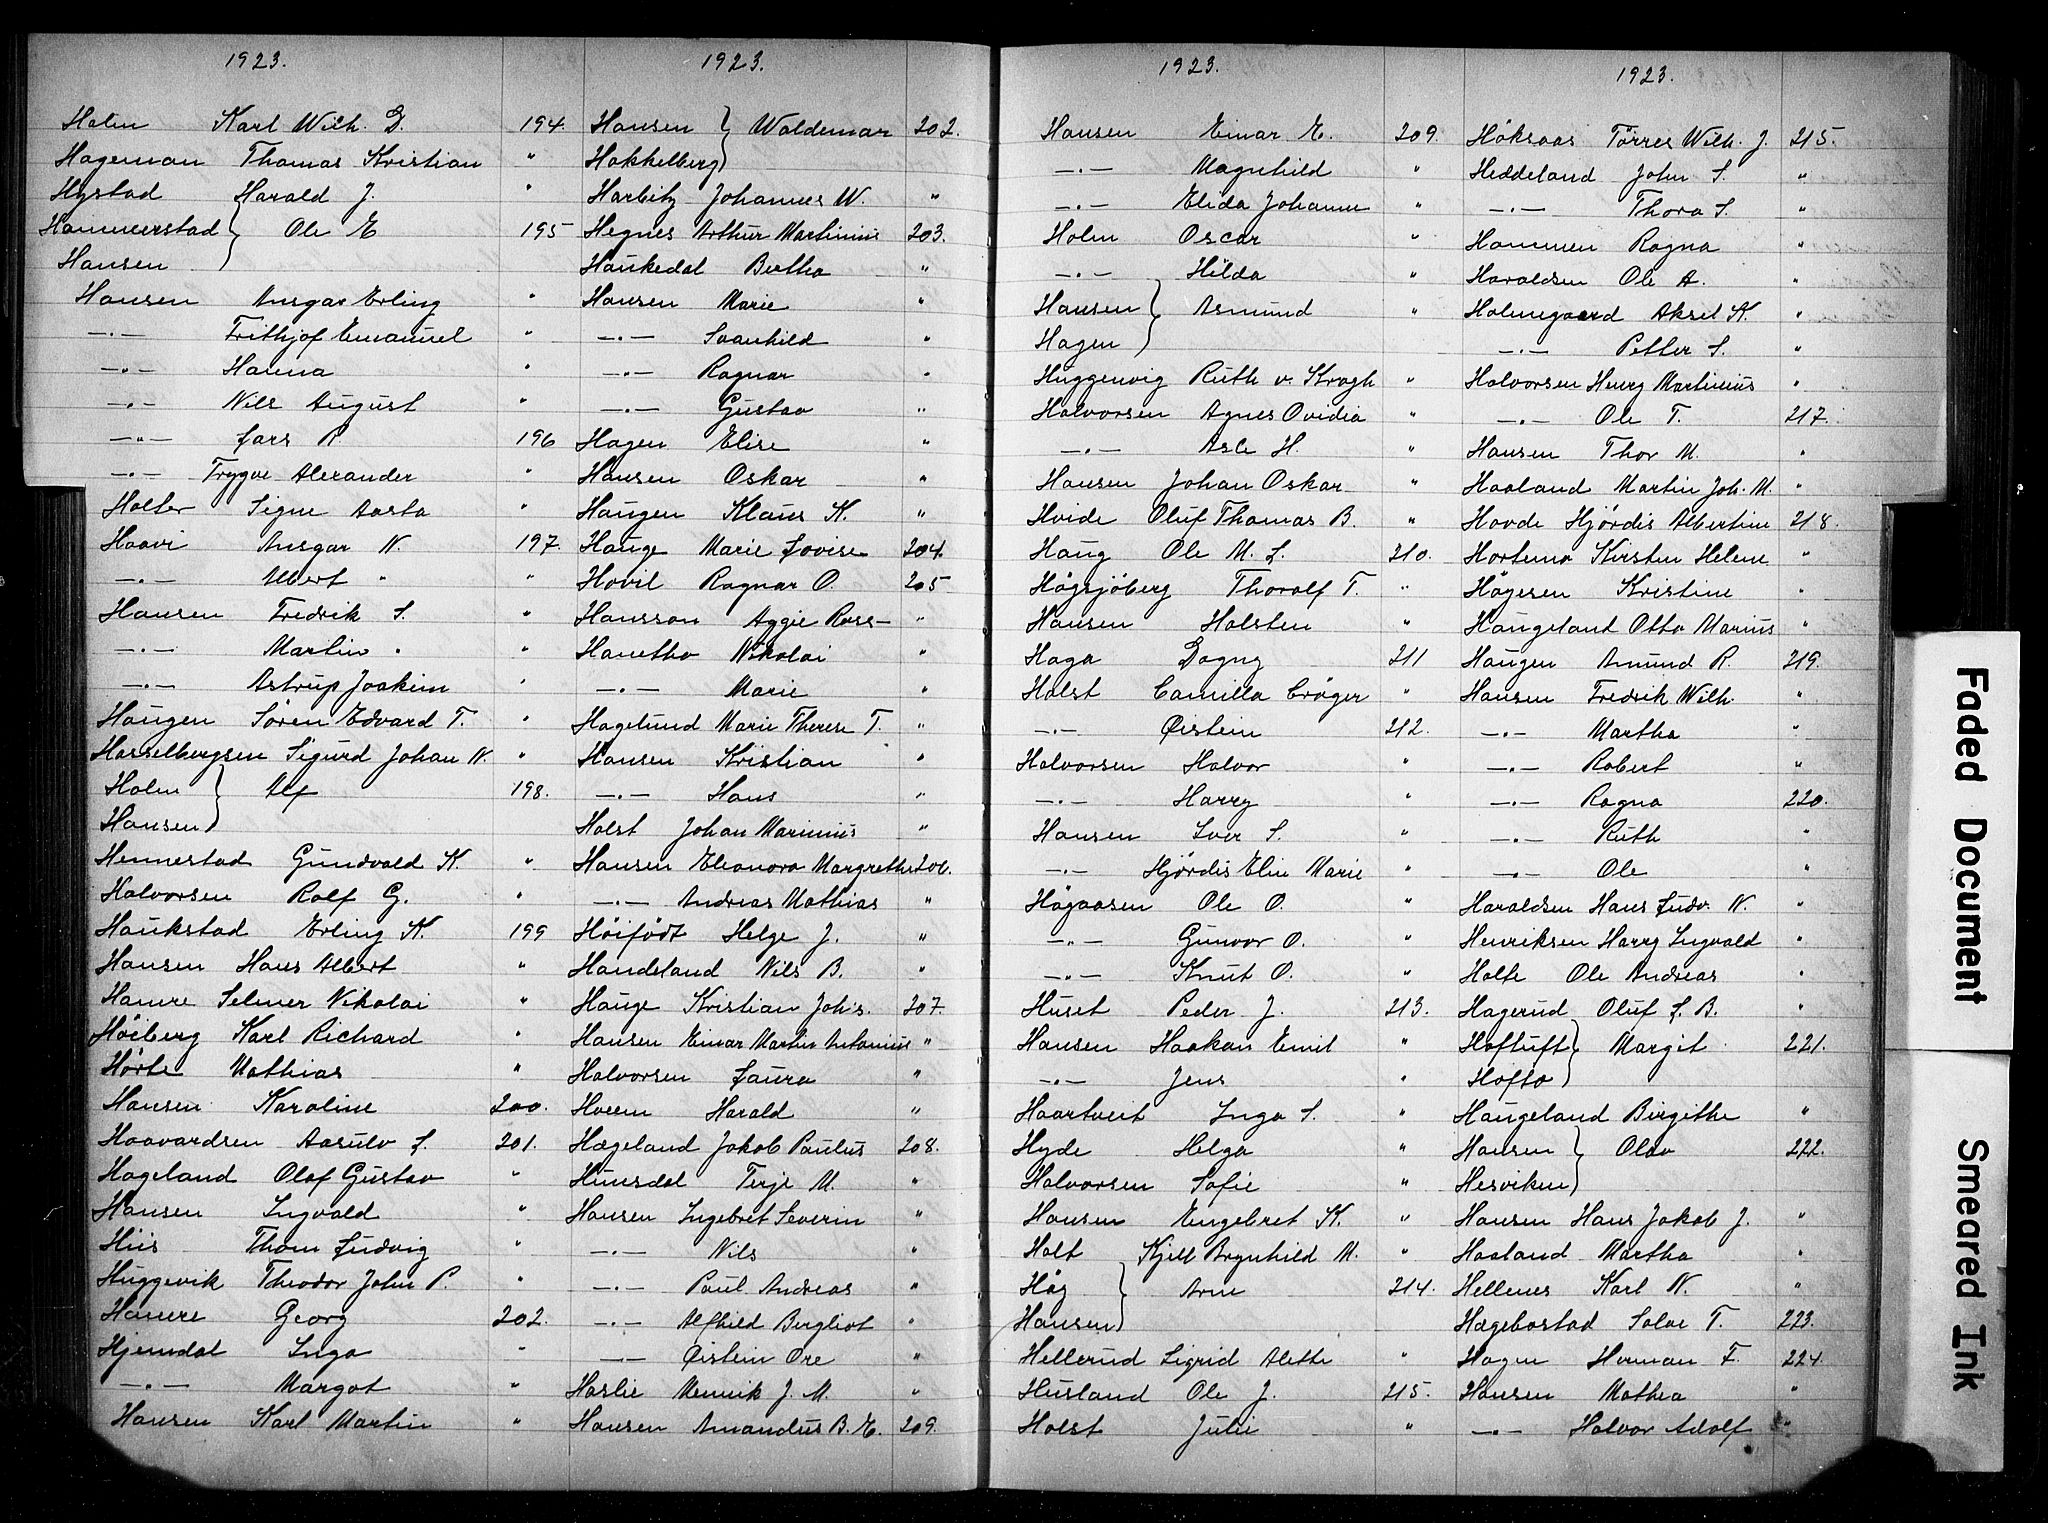 1923.
Holm Karl Wilh. D. 194.
Hageman Thomas Kristian "
Hystad Harald J. "
Hammerstad } Ole E 195
Hansen
Hansen Ansgar Erling "
—"— Frithjof Emanuel "
—"— Hanna "
—"— Nils August "
—"— Lars R 196
—"— Trygve Alexander "
Holter Signe Aasta "
Haavi Ansgar N. 197.
—"— Albert " "
Hansen Fredrik S. "
—"— Martin " "
—"— Astrup Joakim "
Haugen Sören Edvard T. "
Hasselbergsen Sigurd Johan N. "
Holm } Alf 198.
Hansen
Hennestad Gundvald K. "
Halvorsen Rolf G. "
Haukstad Erling K. 199
Hansen Hans Albert "
Hamre Selmer Nikolai "
Höiberg Karl Richard "
Hörte Mathias "
Hansen Karoline 200.
Haavardsen Aasulv S. 201.
Hageland Olaf Gustav "
Hansen Ingvald "
Hiis Thom Ludvig "
Huggevik Theodor John P. "
Hamre Georg 202.
Hjemdal Inga "
—"— Margot "
Hansen Karl Martin "
1923.
Hansen } Waldemar 202.
Hakkelberg
Harbitz Johannes W. "
Hegnes Arthur Martinius 203.
Haukedal Bertha "
Hansen Marie "
—"— Svanhild "
—"— Ragnar "
—"— Gustav "
Hagen Elise "
Hansen Oskar "
Haugen Klaus K. "
Hauge Marie Lovise 204.
Hovil Ragnar O. 205
Hansson Aggie Rose "
Hanetho Nikolai "
—"— Marie "
Hagelund Marie Therese T. "
Hansen Kristian "
—"— Hans "
Holst Johan Marinius "
Hansen Eleonora Margrethe 206.
—"— Andreas Mathias "
Höifödt Helge J. "
Handeland Nils B. "
Hauge Kristian Joh's. 207.
Hansen Einar Martin Antonius "
Halvorsen Laura "
Hveem Harald "
Hægeland Jakob Paulus 208.
Hunsdal Terje M. "
Hansen Ingebret Severin "
—"— Nils "
—"— Paul Andreas "
—"— Alfhild Bergliot "
—"— Øistein Ore "
Haslie Mennik J. M. "
Hansen Amandus B. E. 209.
1923.
Hansen Einar E. 209.
—"— Magnhild "
—"— Elida Johanne "
Holm Oscar "
—"— Hilda "
Hansen } Asmund "
Hagen
Huggenvig Ruth v. Krogh "
Halvorsen Agnes Ovidia "
—"— Asle H. "
Hansen Johan Oskar "
Hvide Oluf Thomas B. "
Haug Ole M. L. 210.
Högsjöberg Thoralf T. "
Hansen Halsten "
Haga Dagny 211
Holst Camilla Cröger "
—"— Øistein 212.
Halvorsen Halvor "
—"— Harry "
Hansen Iver S. "
—"— Hjördis Elin Marie "
Högaasen Ole O. "
—"— Gunvor O. "
—"— Knut O. "
Huset Peder J. 213.
Hansen Haakon Emil "
—"— Jens "
Haartveit Inga S. "
Hyde Helga "
Halvorsen Sofie "
Hansen Engebret K. "
Holt Kjell Brynhild M. "
Høg } Arne 214.
Hansen
Hellerud Sigrid Alette "
Husland Ole J. 215.
Holst Julie "
1923.
Höksaas Törres Wilh. J. 215.
Heddeland John S. "
—"— Thora S. "
Hommen Ragna "
Haraldsen Ole A. "
Holmegaard Aksel K. "
—"— Petter S. "
Halvorsen Henry Martinius "
—"— Ole T. 217.
Hansen Thor M. "
Haaland Martin Joh. M. "
Hovde Hjördis Albertine 218.
Hortemo Kirsten Helene "
Högesen Kristine "
Haugeland Otto Marius "
Haugen Amund R. 219.
Hansen Fredrik Wilh. "
—"— Martha "
—"— Robert "
—"— Ragna 220.
—"— Ruth "
—"— Ole "
Haraldsen Hans Ludv. N. "
Henriksen Harry Ingvald "
Holte Ole Andreas "
Hagerud Oluf L. B. "
Hoftuft } Margit 221.
Hofto
Haugeland Birgithe "
Hansen } Olav 222.
Hesviken
Hansen Hans Jakob J. "
Haaland Martha "
Hellenes Karl N. "
Hægebostad Salve T. 223.
Hagen Herman F. 224.
Hansen Mathea "
—"— Halvor Adolf "
Faded Document
Smeared Ink